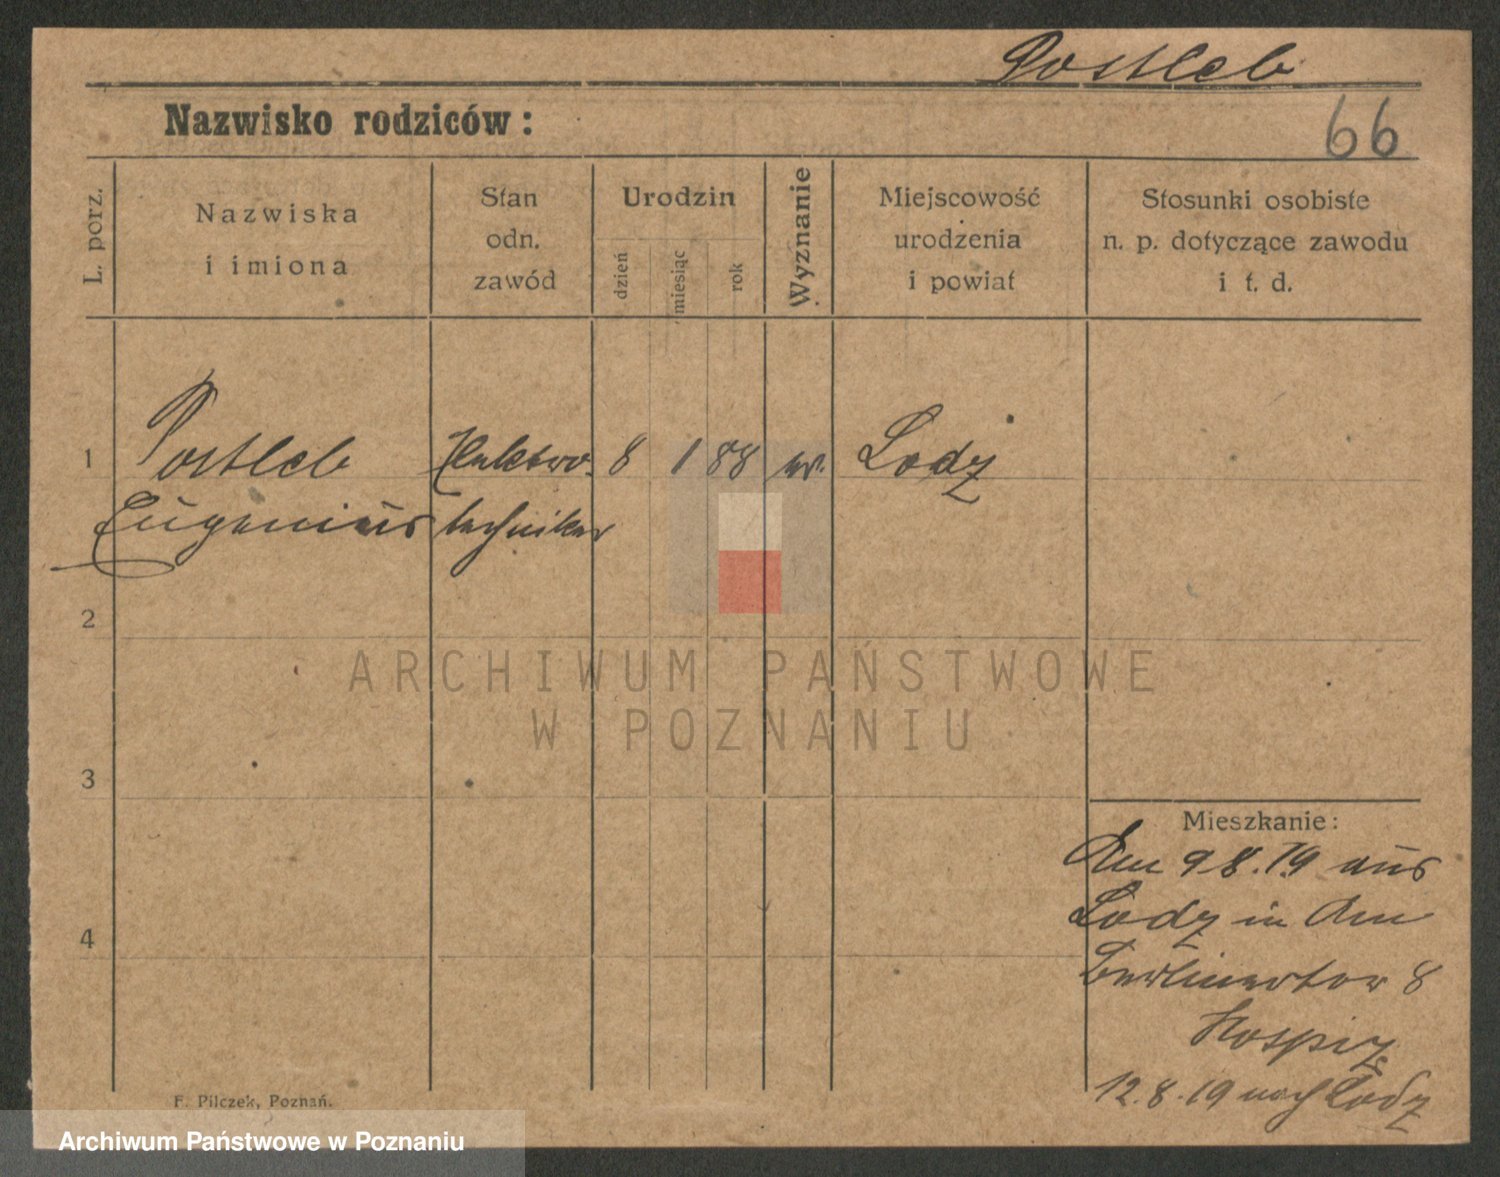 Postleb
Nazwisko rodziców:
66
L. porz.
Nazwiska
i imiona
Stan
odn.
zawód
Urodzin
dzień
miesiąc
rok
Wyznanie
Miejscowość
urodzenia
i powiat
Stosunki osobiste
n. p. dotyczące zawodu
i t. d.
1 Postleb Elektro- 8 1 88 ev. Lodz
Eugenius techniker
2
ARCHIWUM PAŃSTWOWE
W POZNANIU
3
Mieszkanie:
Am 9 8. 19 aus
Lodz in Am
4
Berlinertor 8
Hospiz
12. 8. 19 nach Lodz
F. Pilczek, Poznań.
Archiwum Państwowe w Poznaniu